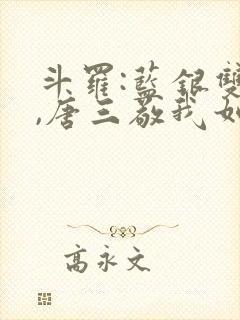 斗羅:藍銀雙
,唐三敬我如
高永文